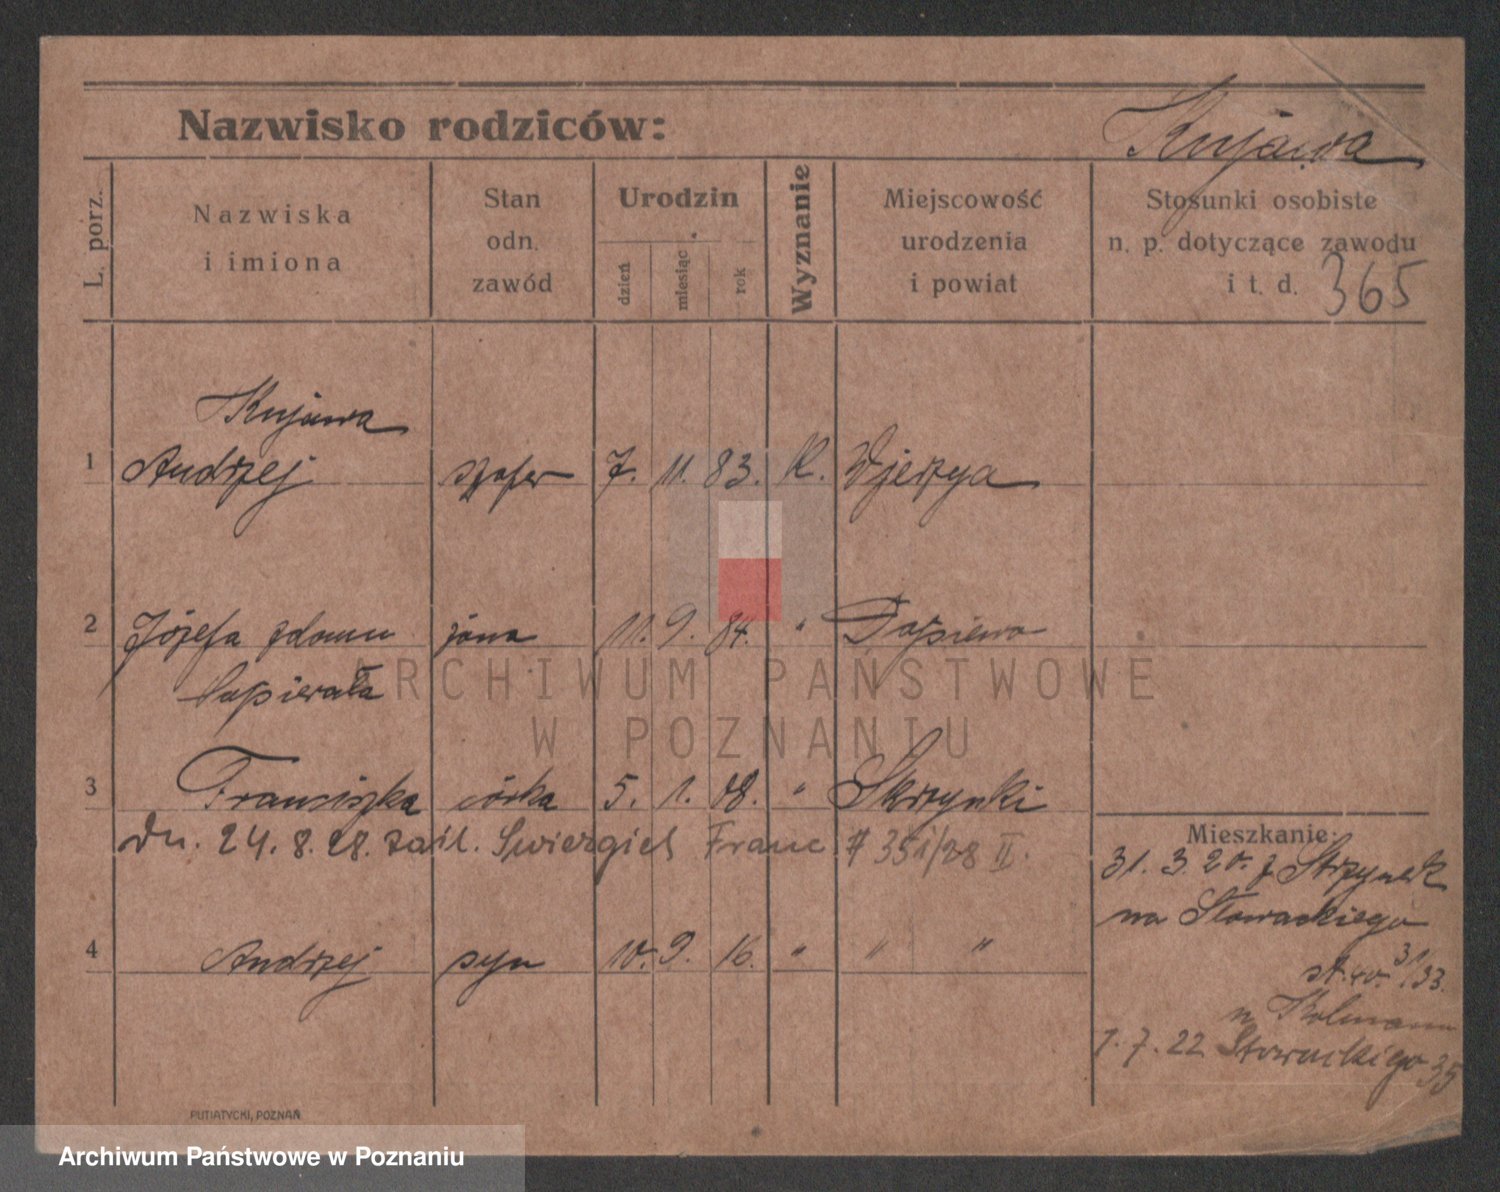 Nazwisko rodziców:
Kujawa
L. porz.
Nazwiska
i imiona
Stan
odn.
zawód
Urodzin
dzień
miesiąc
rok
Wyznanie
Miejscowość
urodzenia
i powiat
Stosunki osobiste
n. p. dotyczące zawodu
i t. d.
365
Kujawa
1 Andrzej szofer 7. 11. 83. K.
2 Józefa z domu żona 11. 9. 84. "
3 Franciszka córka 5. 1. 08. " Skrzynki
Dn. 24. 8. 28. zaśl. Swiergiel Franc # 351/28 II.
4 Andrzej syn 10. 9. 16. " " "
Mieszkanie:
31. 3. 20. z
na Słowackiego
31/33.
1. 7. 22 Słowackiego 35
PUTIATYCKI, POZNAŃ
ARCHIWUM PAŃSTWOWE
W POZNANIU
Archiwum Państwowe w Poznaniu